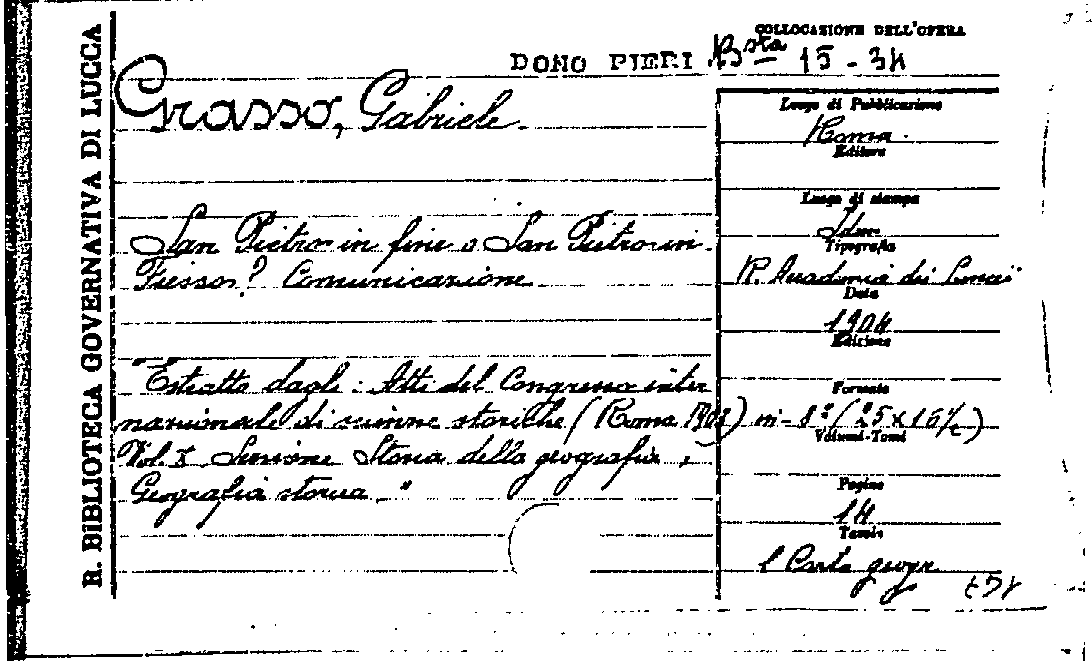 R. BIBLIOTECA GOVERNATIVA DI LUCCA
COLLOCAZIONE DELL'OPERA
DONO PIERI Bsta 15 - 34
Grasso, Gabriele.
San Pietro in fine o San Pietro in
Fesson? Comunicazione
"Estratto dagli: Atti del Congresso inter
nazionale di scienze storiche (Roma 1903)
Vol. X Sezione Storia della geografia,
Geografia storica."
Luogo di Pubblicazione
Roma.
Editore
Luogo di stampa
Idem
Tipografia
R. Accademia dei Lincei
Data
1904
Edizione
Formato
in-8º (25x16½)
Volumi-Tomi
Pagine
14
Tavole
1 Carta geogr.